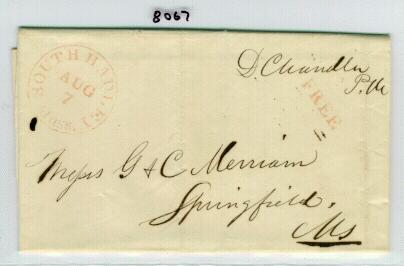 8067
D. Chandler
P.M
SOUTH HADLEY
AUG
7
MASS.
FREE
Messrs G & C Merriam
Springfield.
Ms